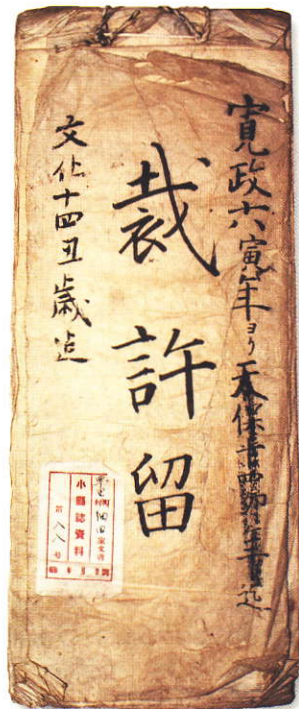 寛政六寅年ヨリ天保
裁許留
文化十四丑歳迠
細田家文書
小縣誌資料
第八八号